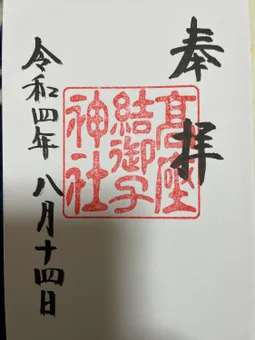 奉拝
高座
結御子
神社
令和四年八月十四日